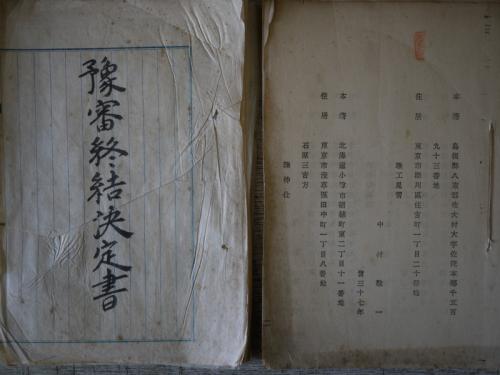 豫審終結決定書
本籍 島根縣八束郡法吉村大字佐陀本郷千三百
九十三番地
住居 東京市深川區住吉町一丁目二十番地
職工見習
中村敬一
當三十七年
本籍 北海道小樽市緑町東二丁目十一番地
住居 東京市淺草區田中町一丁目八番地
石原三吉方